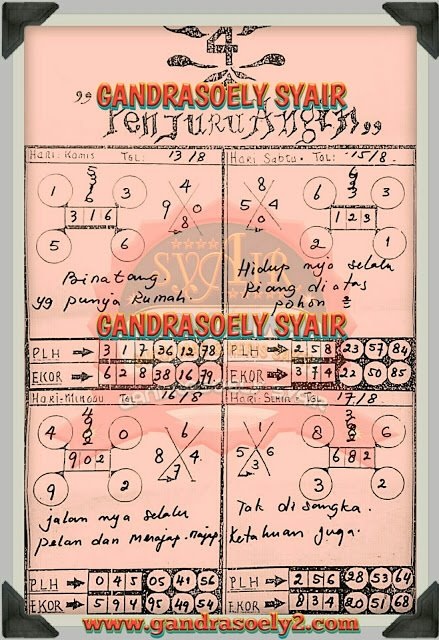 4
GANDRASOELY SYAIR
"Penjuru Angin"
Hari: Kamis TGL: 13/8
1 3
3 1 6
5 6
4
9 0
8
Binatang.
yg punya Rumah.
Hari Sabtu. TGL: 15/8.
8
5 4
0
6 3
1 2 3
2 1
Hidup nya selalu
Riang di atas
pohon =
SYAIR
GANDRASOELY SYAIR
PLH 3 1 7 36 12 78
EKOR 6 2 8 38 16 79
PLH 2 5 8 23 57 84
EKOR 3 7 4 22 50 85
Hari-Minggu TGL 16/8
4 0
9 0 2
9 2
6
8 4
7
jalan nya selalu
pelan dan Merajap.
Hari Senin TGL 17/8
1
5 6
3
8 6
6 8 2
3 2
Tak disangka.
Ketahuan juga.
PLH 0 4 5 05 41 56
EKOR 5 9 4 95 49 54
PLH 2 5 6 28 53 64
EKOR 8 3 4 20 51 68
www.gandrasoely2.com